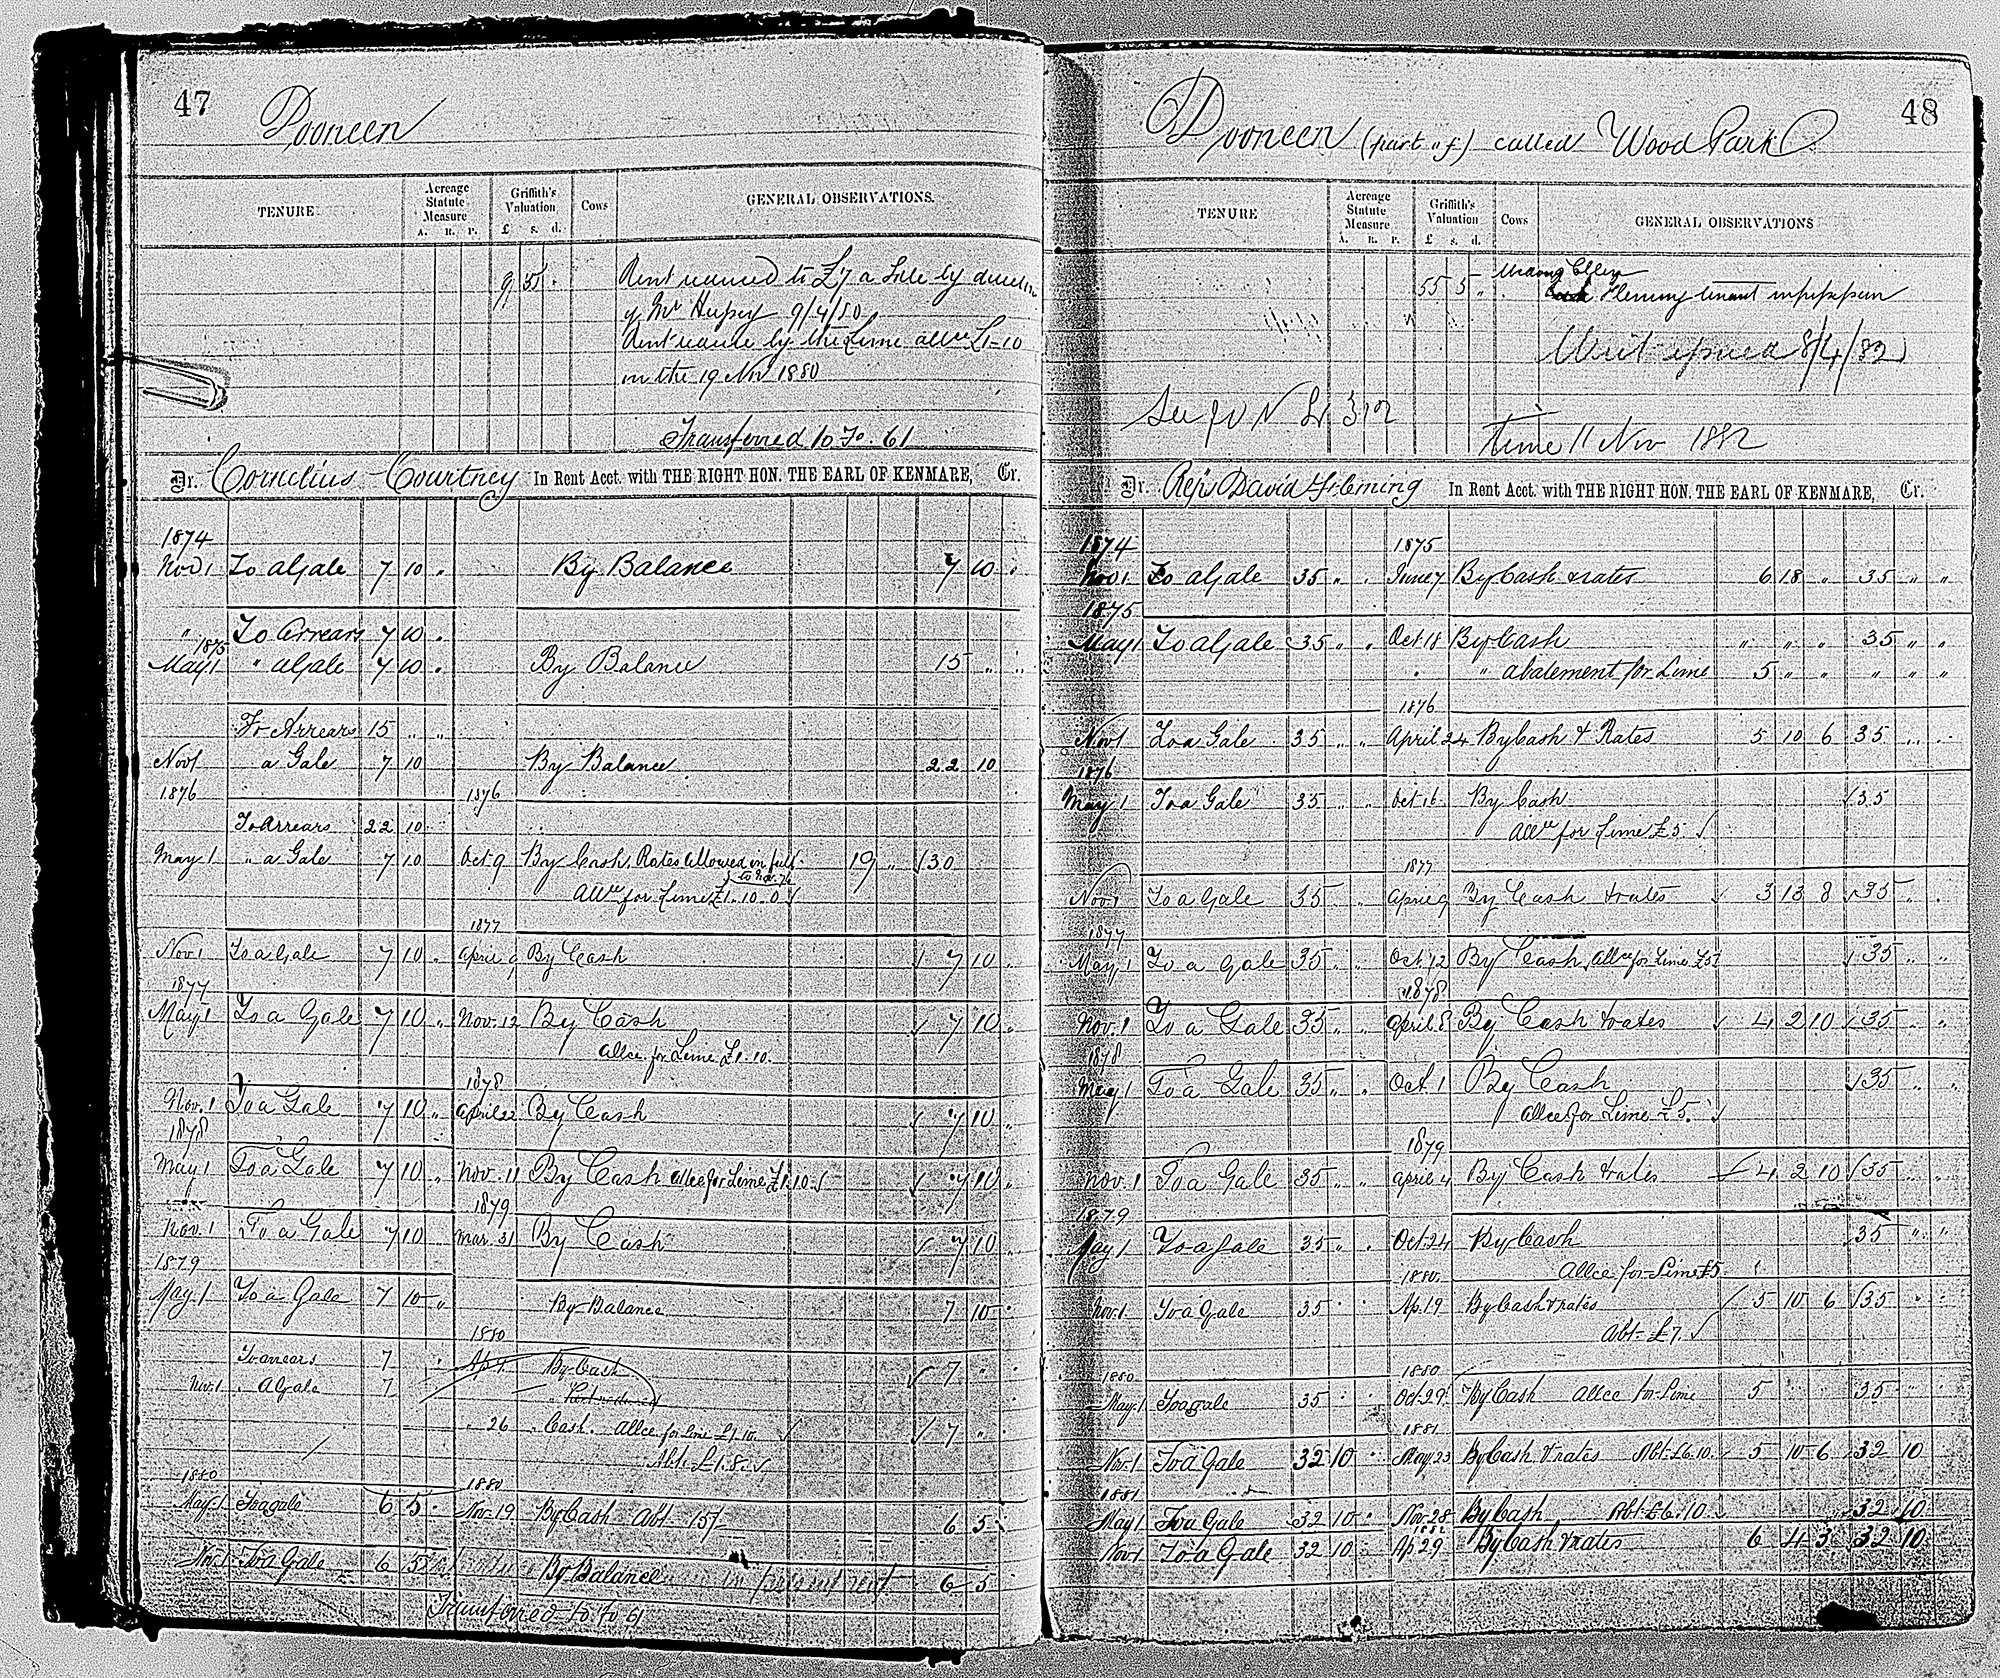 47
Dooneen
TENURE
Acreage Statute Measure
A. R. P.
Griffith's Valuation
£ s. d.
Cows
GENERAL OBSERVATIONS.
9 35 .
Rent reduced to £7 a Gale by direction
of Mr Hussey 9/4/80
Rent reduced by the Lime allce £1-10
on the 19 Nov 1880
Transferred to Fo. 61
Dr. Cornelius Courtney In Rent Acct. with THE RIGHT HON. THE EARL OF KENMARE, Cr.
1874
Nov 1 To a Gale 7 10 " By Balance 7 10 "
" To Arrears 7 10 "
1875
May 1 " a Gale 7 10 " By Balance 15 " "
To Arrears 15 " "
Nov 1 a Gale 7 10 By Balance 22 10
1876 1876
To Arrears 22 10
May 1 " a Gale 7 10 Oct 9 By Cash, Rates allowed in full 19 " 30
to Nov. 74
Allce for Lime £1. 10. 0
1877
Nov 1 To a Gale 7 10 " April 9 By Cash 7 10
1877
May 1 To a Gale 7 10 " Nov. 12 By Cash 7 10 "
Allce. for Lime £1. 10.
1878
Nov. 1 To a Gale 7 10 " April 22 By Cash 7 10 "
1878
May 1 To a Gale 7 10 " Nov. 11 By Cash allce for Lime £1. 10. 7 10 "
1879
Nov. 1 To a Gale 7 10 Mar. 31 By Cash 7 10 "
1879
May 1 To a Gale 7 10 " By Balance 7 10
1880
To arrears 7 Ap 9 By Cash 7 "
Nov. 1 " A Gale 7
" 26 " Cash. Allce for Lime £1. 10. 7 "
Abt. £1. 8.
1880 1880
May 1 To a gale 6 5 Nov 19 By Cash Abt 15/- 6 5
Nov 1 To a Gale 6 5 By Balance 6 5
Transferred to Fo 61
48
Dooneen (part of) called Wood Park
TENURE
Acreage Statute Measure
A. R. P.
Griffith's Valuation
£ s. d.
Cows
GENERAL OBSERVATIONS
55 5 "
Fleming tenant in possession
Writ issued 8/4/82
See
time 11 Nov 1882
Dr. Reps David Fleming In Rent Acct. with THE RIGHT HON. THE EARL OF KENMARE, Cr.
1874 1875
Nov 1 To a Gale 35 " " June 7 By Cash & rates 6 18 " 35 " "
1875
May 1 To a Gale 35 " " Oct 18 By Cash " " " 35 " "
" " abatement for Lime 5 " " " " "
1876
Nov 1 To a Gale 35 " " April 24 By Cash & Rates 5 10 6 35 " "
1876
May 1 To a Gale 35 " " Oct 16 By Cash 35
Allce for Lime £5.
1877
Nov 1 To a Gale 35 " " April 9 By Cash & rates 3 13 8 35 " "
1877
May 1 To a Gale 35 " " Oct. 12 By Cash, Allce for Lime £5 35 " "
1878
Nov. 1 To a Gale 35 " " April 8 By Cash & rates 4 2 10 35 " "
1878
May 1 To a Gale 35 " " Oct. 1 By Cash 35 " "
Allce for Lime £5.
1879
Nov. 1 To a Gale 35 " " April 4 By Cash & rates 4 2 10 35 " "
1879
May 1 To a Gale 35 " " Oct. 24 By Cash 35 " "
Allce for Lime £5
1880
Nov 1 To a Gale 35 " " Ap. 19 By Cash & rates 5 10 6 35 " "
Abt. £7.
1880 1880
May 1 To a gale 35 " " Oct. 29 By Cash Allce for Lime 5 35 " "
1881
Nov. 1 To a Gale 32 10 " May 23 By Cash & rates Abt. £6. 10. 5 10 6 32 10
1881
May 1 To a Gale 32 10 " Nov. 28 By Cash Abt. £6. 10 32 10
1882
Nov 1 To a Gale 32 10 Ap 29 By Cash & rates 6 4 3 32 10